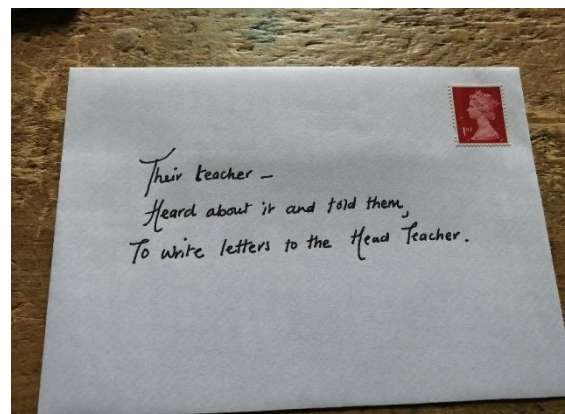 Their teacher –
Heard about it and told them,
To write letters to the Head Teacher.
1ST